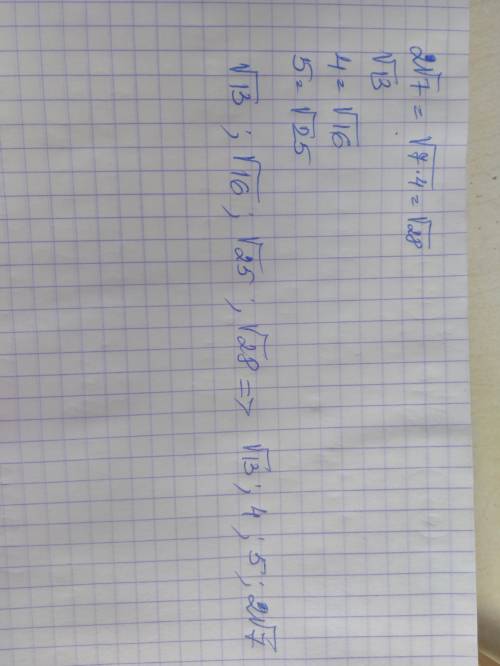 2√7 = √7·4 = √28
√13
4 = √16
5 = √25
√13 ; √16 ; √25 ; √28 => √13 ; 4 ; 5 ; 2√7